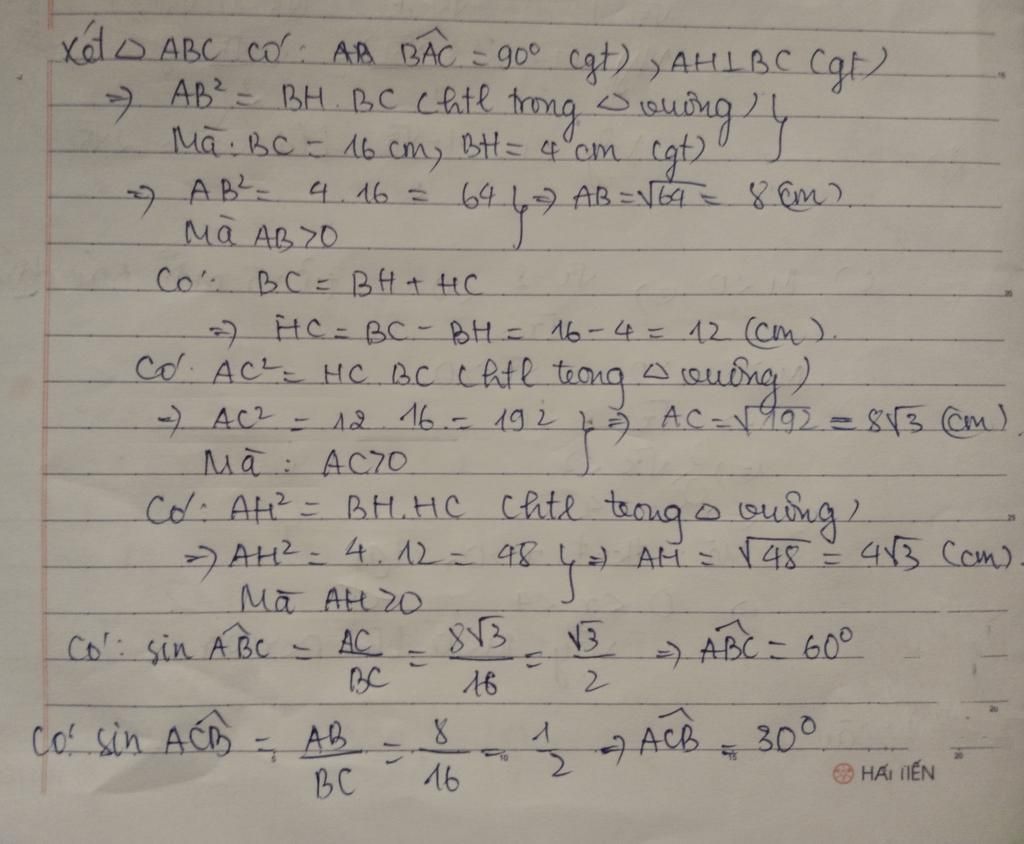 Xét △ ABC có: AB BÂC = 90° (gt), AH⊥BC (gt)
⇒ AB² = BH.BC (htl trong △ vuông) }
Mà: BC = 16 cm, BH = 4 cm (gt)
⇒ AB² = 4.16 = 64 } ⇒ AB = √64 = 8 (cm).
Mà AB>0
Có: BC = BH + HC
⇒ HC = BC - BH = 16 - 4 = 12 (cm).
Có: AC² = HC.BC (htl trong △ vuông)
⇒ AC² = 12.16 = 192 } ⇒ AC = √192 = 8√3 (cm)
Mà: AC>0
Có: AH² = BH.HC (htl trong △ vuông)
⇒ AH² = 4.12 = 48 } ⇒ AH = √48 = 4√3 (cm).
Mà AH>0
Có: sin ABC = AC/BC = 8√3/16 = √3/2 ⇒ ABC = 60°
Có: sin ACB = AB/BC = 8/16 = 1/2 ⇒ ACB = 30°
HẢI TIẾN